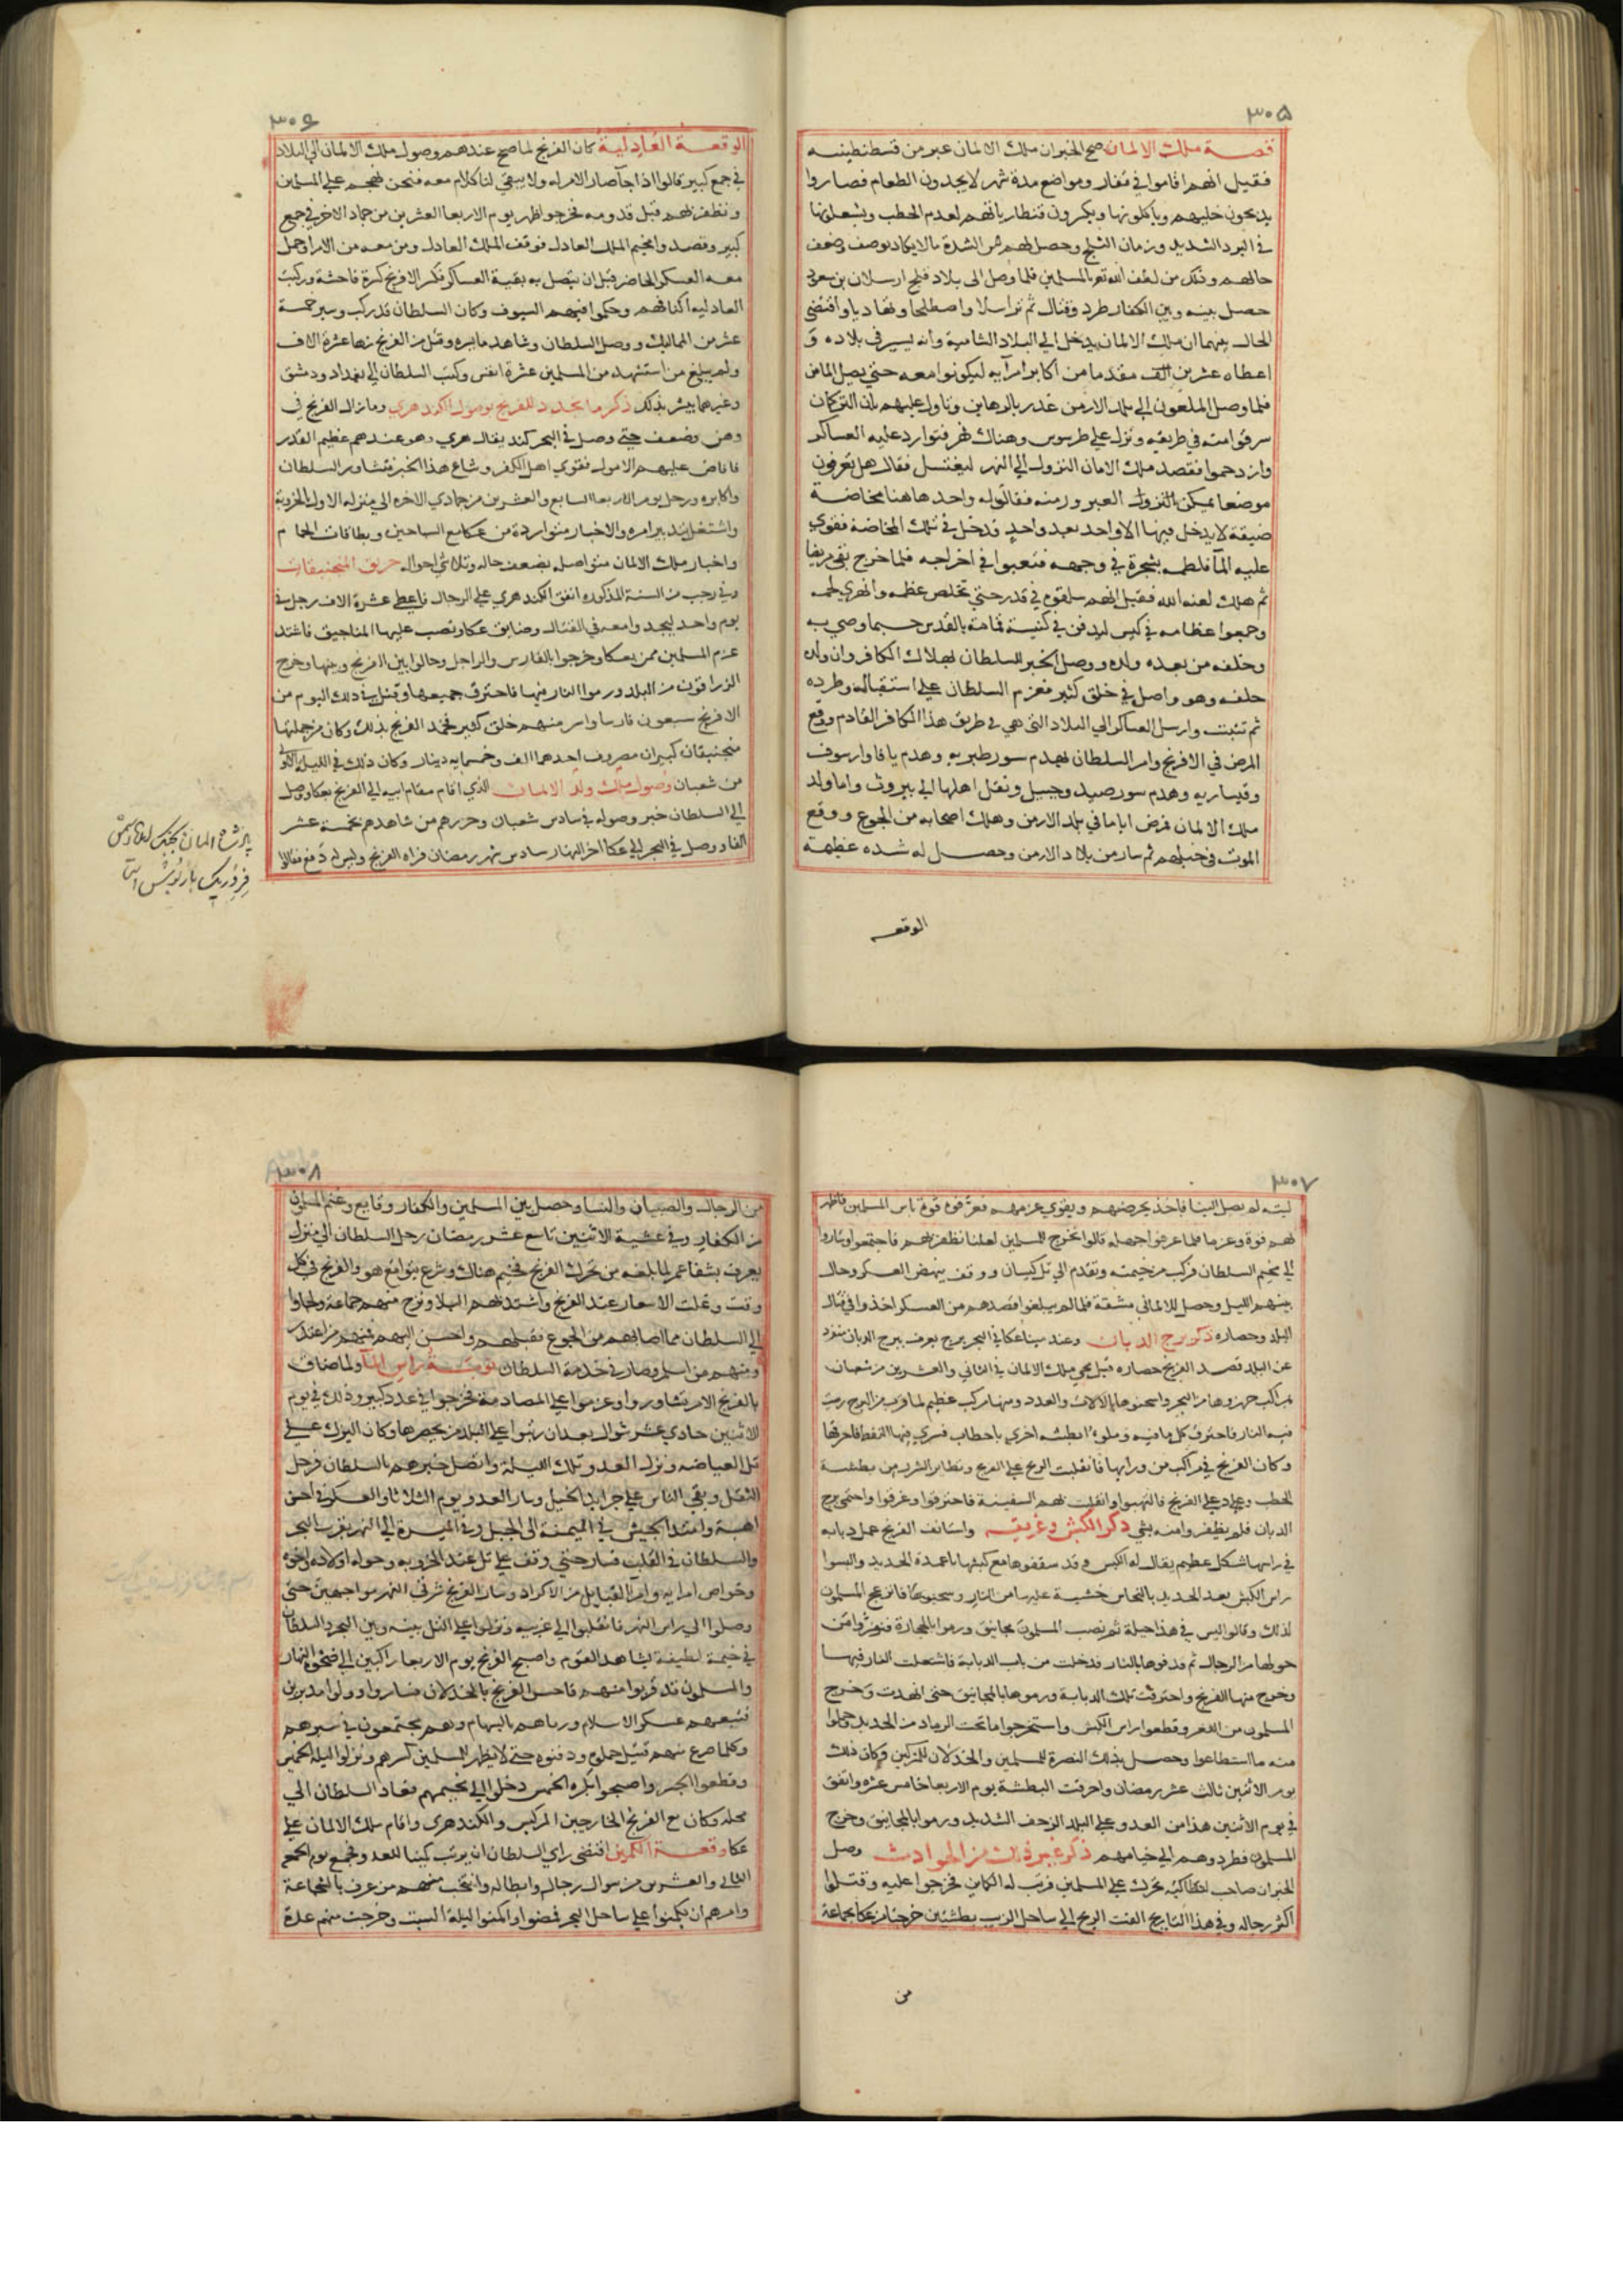 ۳۰۵
قصة ملك الالمان صح الخبر ان ملك الالمان عبر من قسطنطينيه
فقيل انهم اقاموا في قفار ومواضع مدة شهر لا يجدون الطعام فصاروا
يذبحون خيلهم وياكلونها ويكسرون قنطارياتهم لعدم الحطب ويشعلونها
في البرد الشديد وزمان الثلج وحصل لهم من الشدة مالا يكاد يوصف وضعف
حالهم وذلك من لطف الله تعالى بالمسلمين فلما وصل الى بلاد قلج ارسلان بن مسعود
حصل بينه وبين الكفار طرد وقتال ثم تراسلا واصطلحا وتهاديا واقتضى
الحال بينهما ان ملك الالمان يدخل الي البلاد الشامية وانه يسير في بلاده و
اعطاه عشرين الف مقدما من اكابر امرآيه ليكونوا معه حتي يصل المامن
فلما وصل الملعون الي بلد الارمن غدر بالرهاين وتاول عليهم بان التركمان
سرقوا منه في طريقه ونزل علي طرسوس وهناك نهر فتوارد عليه العساكر
وازدحموا فقصد ملك الالمان النزول الي النهر ليغتسل فقال هل تعرفون
موضعا يمكن النزول العبور منه فقال له واحد هاهنا مخاضة
ضيقة لا يدخل فيها الا واحد بعد واحد فدخل في تلك المخاضة فقوي
عليه المآ فلطمه بشجرة في وجهه فتعبوا في اخراجه فلما خرج بقي مريضا
ثم هلك لعنه الله فقيل انهم سلقوه في قدر حتي تخلص عظمه وانهري لحمه
وجمعوا عظامه في كيس ليدفن في كنيسة قمامة بالقدس حسبما وصي به
وخلفه من بعده ولده ووصل الخبر للسلطان بهلاك الكافر وان ولده
خلفه وهو واصل في خلق كثير فعزم السلطان علي استقباله وطرده
ثم تثبت وارسل العساكر الي البلاد التي هي في طريق هذا الكافر القادم ووقع
المرض في الافرنج وامر السلطان بهدم سور طبريه وهدم يافا وارسوف
وقيساريه وهدم سور صيد وجبيل ونقل اهلها الي بيروت واما ولد
ملك الالمان فمرض اياما في بلد الارمن وهلك اصحابه من الجوع ووقع
الموت في خيلهم ثم سار من بلاد الارمن وحصل له شده عظيمة
الوقعه
۳۰۶
الوقعة العادلية كان الفرنج لما صح عندهم وصول ملك الالمان الي البلاد
في جمع كبير قالوا اذا جآ صار الامر له ولا يبقي لنا كلام معه فنحن نهجم علي المسلمين
ونظفر بهم قبل قدومه فخرجوا ظهر يوم الاربعا العشرين من جماد الاخر في جمع
كبير وقصدوا مخيم الملك العادل فوقف الملك العادل ومن معه من الامرا وحمل
معه العسكر الحاضر قبل ان يتصل به بقية العساكر فكسر الافرنج كسرة فاحشة وركبت
العادليه اكتافهم وحكموا فيهم السيوف وكان السلطان قد ركب وسير خمسة
عشر من المماليك ووصل السلطان وشاهد ما يسره وقتل من الفرنج زها عشرة الاف
ولم يبلغ من استشهد من المسلمين عشرة انفس وكتب السلطان الي بغداد ودمشق
وغيرهما يبشر بذلك ذكر ما تجدد للفرنج بوصول الكندهري وما زال الفرنج في
وهن وضعف حتي وصل في البحر كند يقال هري وهو عندهم عظيم القدر
فافاض عليهم الاموال فقوي اهل الكفر وشاع هذا الخبر فتشاور السلطان
واكابره ورحل يوم الاربعا السابع والعشرين من جمادي الاخره الي منزله الاول بالخروبة
واشتغل بتدبير امره والاخبار متواردة من عكا مع السباحين وبطاقات الحمام
واخبار ملك الالمان متواصله بضعف حاله وتلاشي احواله حريق المنجنيقات
وفي رجب من السنة المذكوره انفق الكندهري علي الرجال فاعطي عشرة الاف رجل في
يوم واحد ليجدوا معه في القتال وضايق عكا ونصب عليها المناجيق فاشتد
عزم المسلمين ممن بعكا وخرجوا بالفارس والراجل وحالوا بين الافرنج وبينها وخرج
الزراقون من البلد ورموا النار فيها فاحترق جميعها وقتل في ذلك اليوم من
الافرنج سبعون فارسا واسر منهم خلق كثير فخمد الفرنج بذلك وكان من جملتها
منجنيقان كبيران مصروف احدهما الف وخمسمايه دينار وكان ذلك في الليلة الاولى
من شعبان وصول ملك ولد الالمان الذي اقام مقام ابيه الي الفرنج بعكا وصل
الي السلطان خبر وصوله في سادس شعبان وحزرهم من شاهدهم بخمسة عشر
الفا ووصل في البحر الي عكا اخر النهار سادس شهر رمضان فراه الفرنج وليس له دفع فقالوا
پادشاه المان بجنگ
فردریک بارتوش است
۳۰۷
ليته لم يصل الينا فاخذ يحرضهم ويقوي عزمهم فعرفوه قوة باس المسلمين فاظهر
لهم قوة وعزما فلما عرفوا جهله قالوا نخرج للمسلمين لعلنا نظفر بهم فاجتمعوا وساروا
الي مخيم السلطان فركب من خيمته وتقدم الي تل كيسان ووقف ينهض العسكر وحال
بينهم الليل وحصل للالماني مشقة فلما لم يبلغوا قصدهم من العسكر اخذوا في قتال
البلد وحصاره ذكر برج الدبان وعند مينا عكا في البحر برج يعرف ببرج الدبان منفرد
عن البلد قصد الفرنج حصاره قبل مجي ملك الالمان في الثاني والعشرين من شعبان
بمراكب جهزوها من البحر واشحنوها بالالات والعدد ومنها مركب عظيم لما قرب من البرج رميت
فيه النار فاحترق كل ما فيه وملوا بطشة اخري باحطاب فسري فيها النفط فاحرقها
وكان الفرنج في مراكب من ورايها فانقلبت الريح علي الفرنج وتطاير الشرر من بطشة
الحطب وعاد علي الفرنج فالتهبوا وانقلبت بهم السفينة فاحترقوا وغرقوا واحتمي برج
الدبان فلم يظفروا منه بشي ذكر الكبش وحريقه واستانف الفرنج عمل دبابه
في راسها شكل عظيم يقال له الكبش وقد سقفوها مع كبشها باعمدة الحديد والبسوا
راس الكبش بعد الحديد بالنحاس خشية عليها من النار وسحبوها فانزعج المسلمون
لذلك وقالوا ليس في هذا حيلة ثم نصب المسلمون مجانيق ورموا بالحجارة فنفر من
حولها من الرجال ثم قذفوها بالنار فدخلت من باب الدبابة فاشتعلت النار فيها
وخرج منها الفرنج واحترقت تلك الدبابة ورموها بالمجانيق حتى انهدت وخرج
المسلمون من الثغر وقطعوا راس الكبش واستخرجوا ما تحت الرماد من الحديد وحملوا
منه ما استطاعوا وحصل بذلك النصرة للمسلمين والخذلان للمشركين وكان ذلك
يوم الاثنين ثالث عشر رمضان واحرقت البطشة يوم الاربعا خامس عشره واتفق
في يوم الاثنين هذا من العدو علي البلد الزحف الشديد ورموا بالمجانيق وخرج
المسلمون فطردوهم الي خيامهم ذكر غير ذلك من الحوادث وصل
الخبر ان صاحب انطاكيه تحرك علي المسلمين فرتب له الكماين فخرجوا عليه وقتلوا
اكثر رجاله وفي هذا التاريخ القت الريح الي ساحل الزيب بطشتين خرجتا من عكا بجماعة
من
۳۰۸
من الرجال والصبيان والنسا وحصل بين المسلمين والكفار وقايع وغنم المسلمون
من الكفار وفي عشية الاثنين تاسع عشر رمضان رحل السلطان الي منزل
يعرف بشفاعمر لما بلغه من تحرك الفرنج فخيم هناك وشرع يتواقع هو والفرنج في كل
وقت وغلت الاسعار عند الفرنج واشتد بهم البلا وخرج منهم جماعة ولجاوا
الي السلطان مما اصابهم من الجوع فقبلهم واحسن اليهم فمنهم من اعتذر
ومنهم من اسلم وصار في خدمة السلطان نوبة راس المآ ولما ضاق
بالفرنج الامر تشاوروا وعزموا علي المصادمة فخرجوا في عدد كبير وذلك في يوم
الاثنين حادي عشر شوال بعد ان رتبوا علي البلد من يحصرها وكان اليزك علي
تل العياضه ونزل العدو تلك الليلة واتصل خبرهم بالسلطان فرحل
الثقل وبقي الناس علي جرايد الخيل وسار العدو يوم الثلاثا والعسكر في احسن
اهبة وامتد الجيش في الميمنة الي الجبل وفي الميسرة الي النهر بقرب البحر
والسلطان في القلب فسار حتي وقف علي تل عند الخروبه وحوله اولاده واخوه
وخواص امرايه وامرا القبايل من الاكراد وسار الفرنج شرقي النهر مواجهين حتى
وصلوا الي راس النهر فانقلبوا الي غربيه ونزلوا علي التل بينه وبين البحر والسلطان
في خيمة لطيفة يشاهد القوم واصبح الفرنج يوم الاربعا راكبين الي ضحوة النهار
والمسلمون قد قربوا منهم فاحس الفرنج بالخذلان فساروا وولوا مدبرين
فتبعهم عسكر الاسلام ورماهم بالسهام وهم مجتمعون في سيرهم
وكلما صرع منهم قتيل حملوه ودفنوه حتي لا يظهر للمسلمين كسرهم ونزلوا ليلة الخميس
وقطعوا الجسر واصبحوا بكرة الخميس دخلوا الي مخيمهم فعاد السلطان الي
محله وكان مع الفرنج الخارجين المركيس والكندهري واقام ملك الالمان علي
عكا وقعة الكمين اقتضي راي السلطان ان يرتب كمينا للعدو فجمع يوم الجمعة
الثاني والعشرين من شوال رجاله وابطاله وانتخب منهم من عرف بالشجاعة
وامرهم ان يكمنوا علي ساحل البحر فمضوا واكمنوا ليلة السبت وخرجت منهم عدة